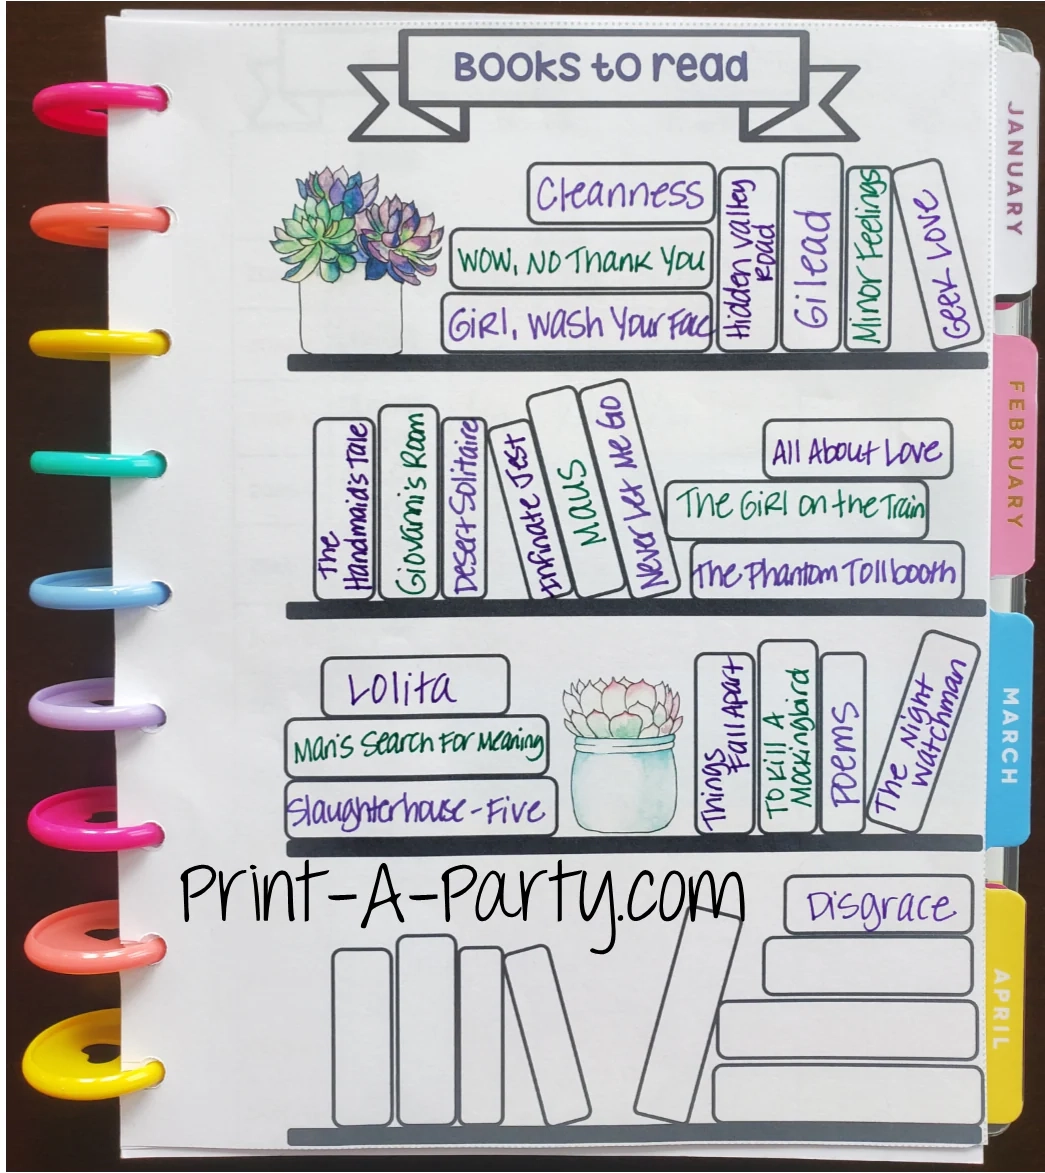 BOOKS to read
Cleanness
WOW, NO THANK YOU
GIRL, WASH YOUR FACE
Hidden Valley
Road
Gilead
Minor Feelings
Geek Love
The
Handmaids Tale
Giovanni's Room
Desert Solitaire
Infinate Jest
Maus
Never Let Me Go
All About Love
The Girl on the Train
The Phantom Tollbooth
Lolita
Man's Search For Meaning
Slaughterhouse-Five
Things
Fall Apart
To Kill A
Mockingbird
Poems
The Night
Watchman
Print-A-Party.com
Disgrace
JANUARY
FEBRUARY
MARCH
APRIL